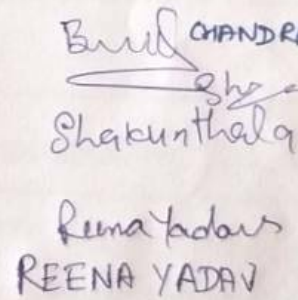 CHANDR
Shakunthala
Reena Yadav
REENA YADAV